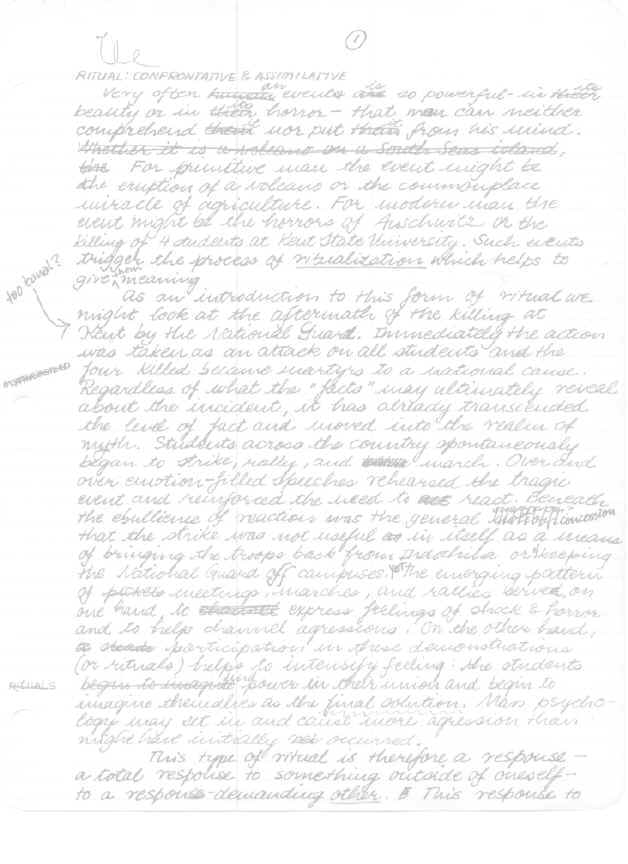 The
1
RITUAL: CONFRONTATIVE & ASSIMILATIVE
Very often human an events are is so powerful - in their its
beauty or in their its horror - that man can neither
comprehend them it nor put them it from his mind.
Whether it is a volcano on a South Seas island,
the For primitive man the event might be
the eruption of a volcano or the commonplace
miracle of agriculture. For modern man the
event might be the horrors of Auschwitz or the
killing of 4 students at Kent State University. Such events
trigger the process of ritualization which helps to
give them meaning
too banal?
As an introduction to this form of ritual we
might look at the aftermath of the killing at
Kent by the National Guard. Immediately the action
was taken as an attack on all students and the
four killed became martyrs to a national cause.
Regardless of what the "facts" may ultimately reveal
about the incident, it has already transcended
the level of fact and moved into the realm of
myth. Students across the country spontaneously
began to strike, rally, and march. Over and
over emotion-filled speeches rehearsed the tragic
event and reinforced the need to act react. Beneath
the ebullience of reaction was the general concession
that the strike was not useful as in itself as a means
of bringing the troops back from Indochina or keeping
the National Guard off campuses. Yet the emerging pattern
of pickets meetings, marches, and rallies served, on
one hand, to express feelings of shock & horror
and to help channel agressions. On the other hand,
participation in these demonstrations
(or rituals) helps to intensify feeling: the students
RITUALS
begin to imagine find power in their union and begin to
imagine themselves as the final solution. Mass psycho-
logy may set in and cause more agression than
might have initially occurred.
This type of ritual is therefore a response -
a total response to something outside of oneself -
to a response-demanding other. This response to